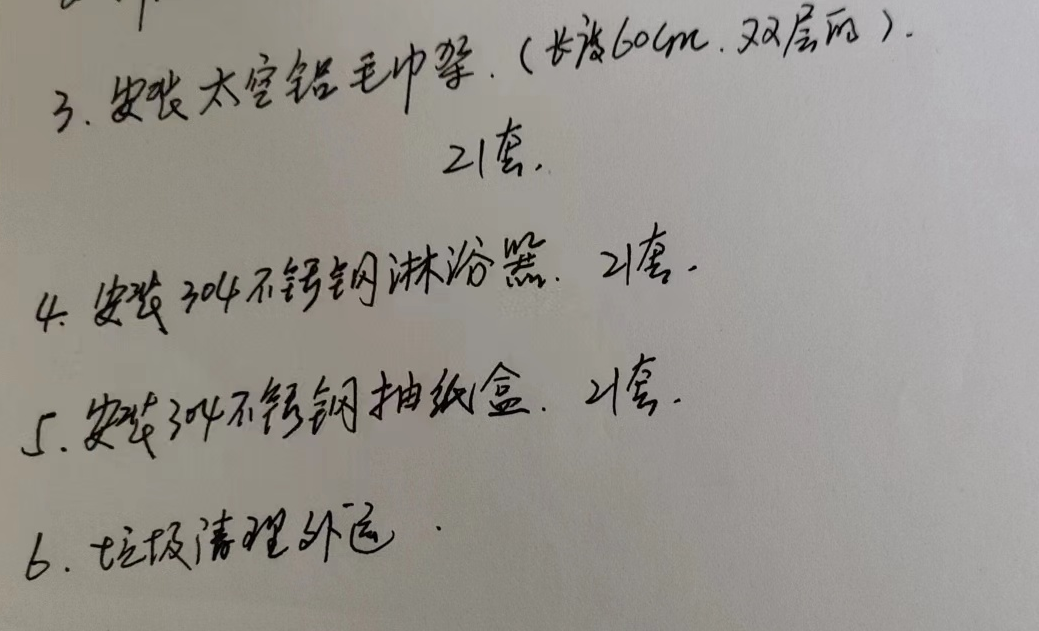 3. 安装太空铝毛巾架. (长度60cm. 双层的).
21套.
4. 安装304不锈钢淋浴器. 21套.
5. 安装304不锈钢抽纸盒. 21套.
6. 垃圾清理外运.